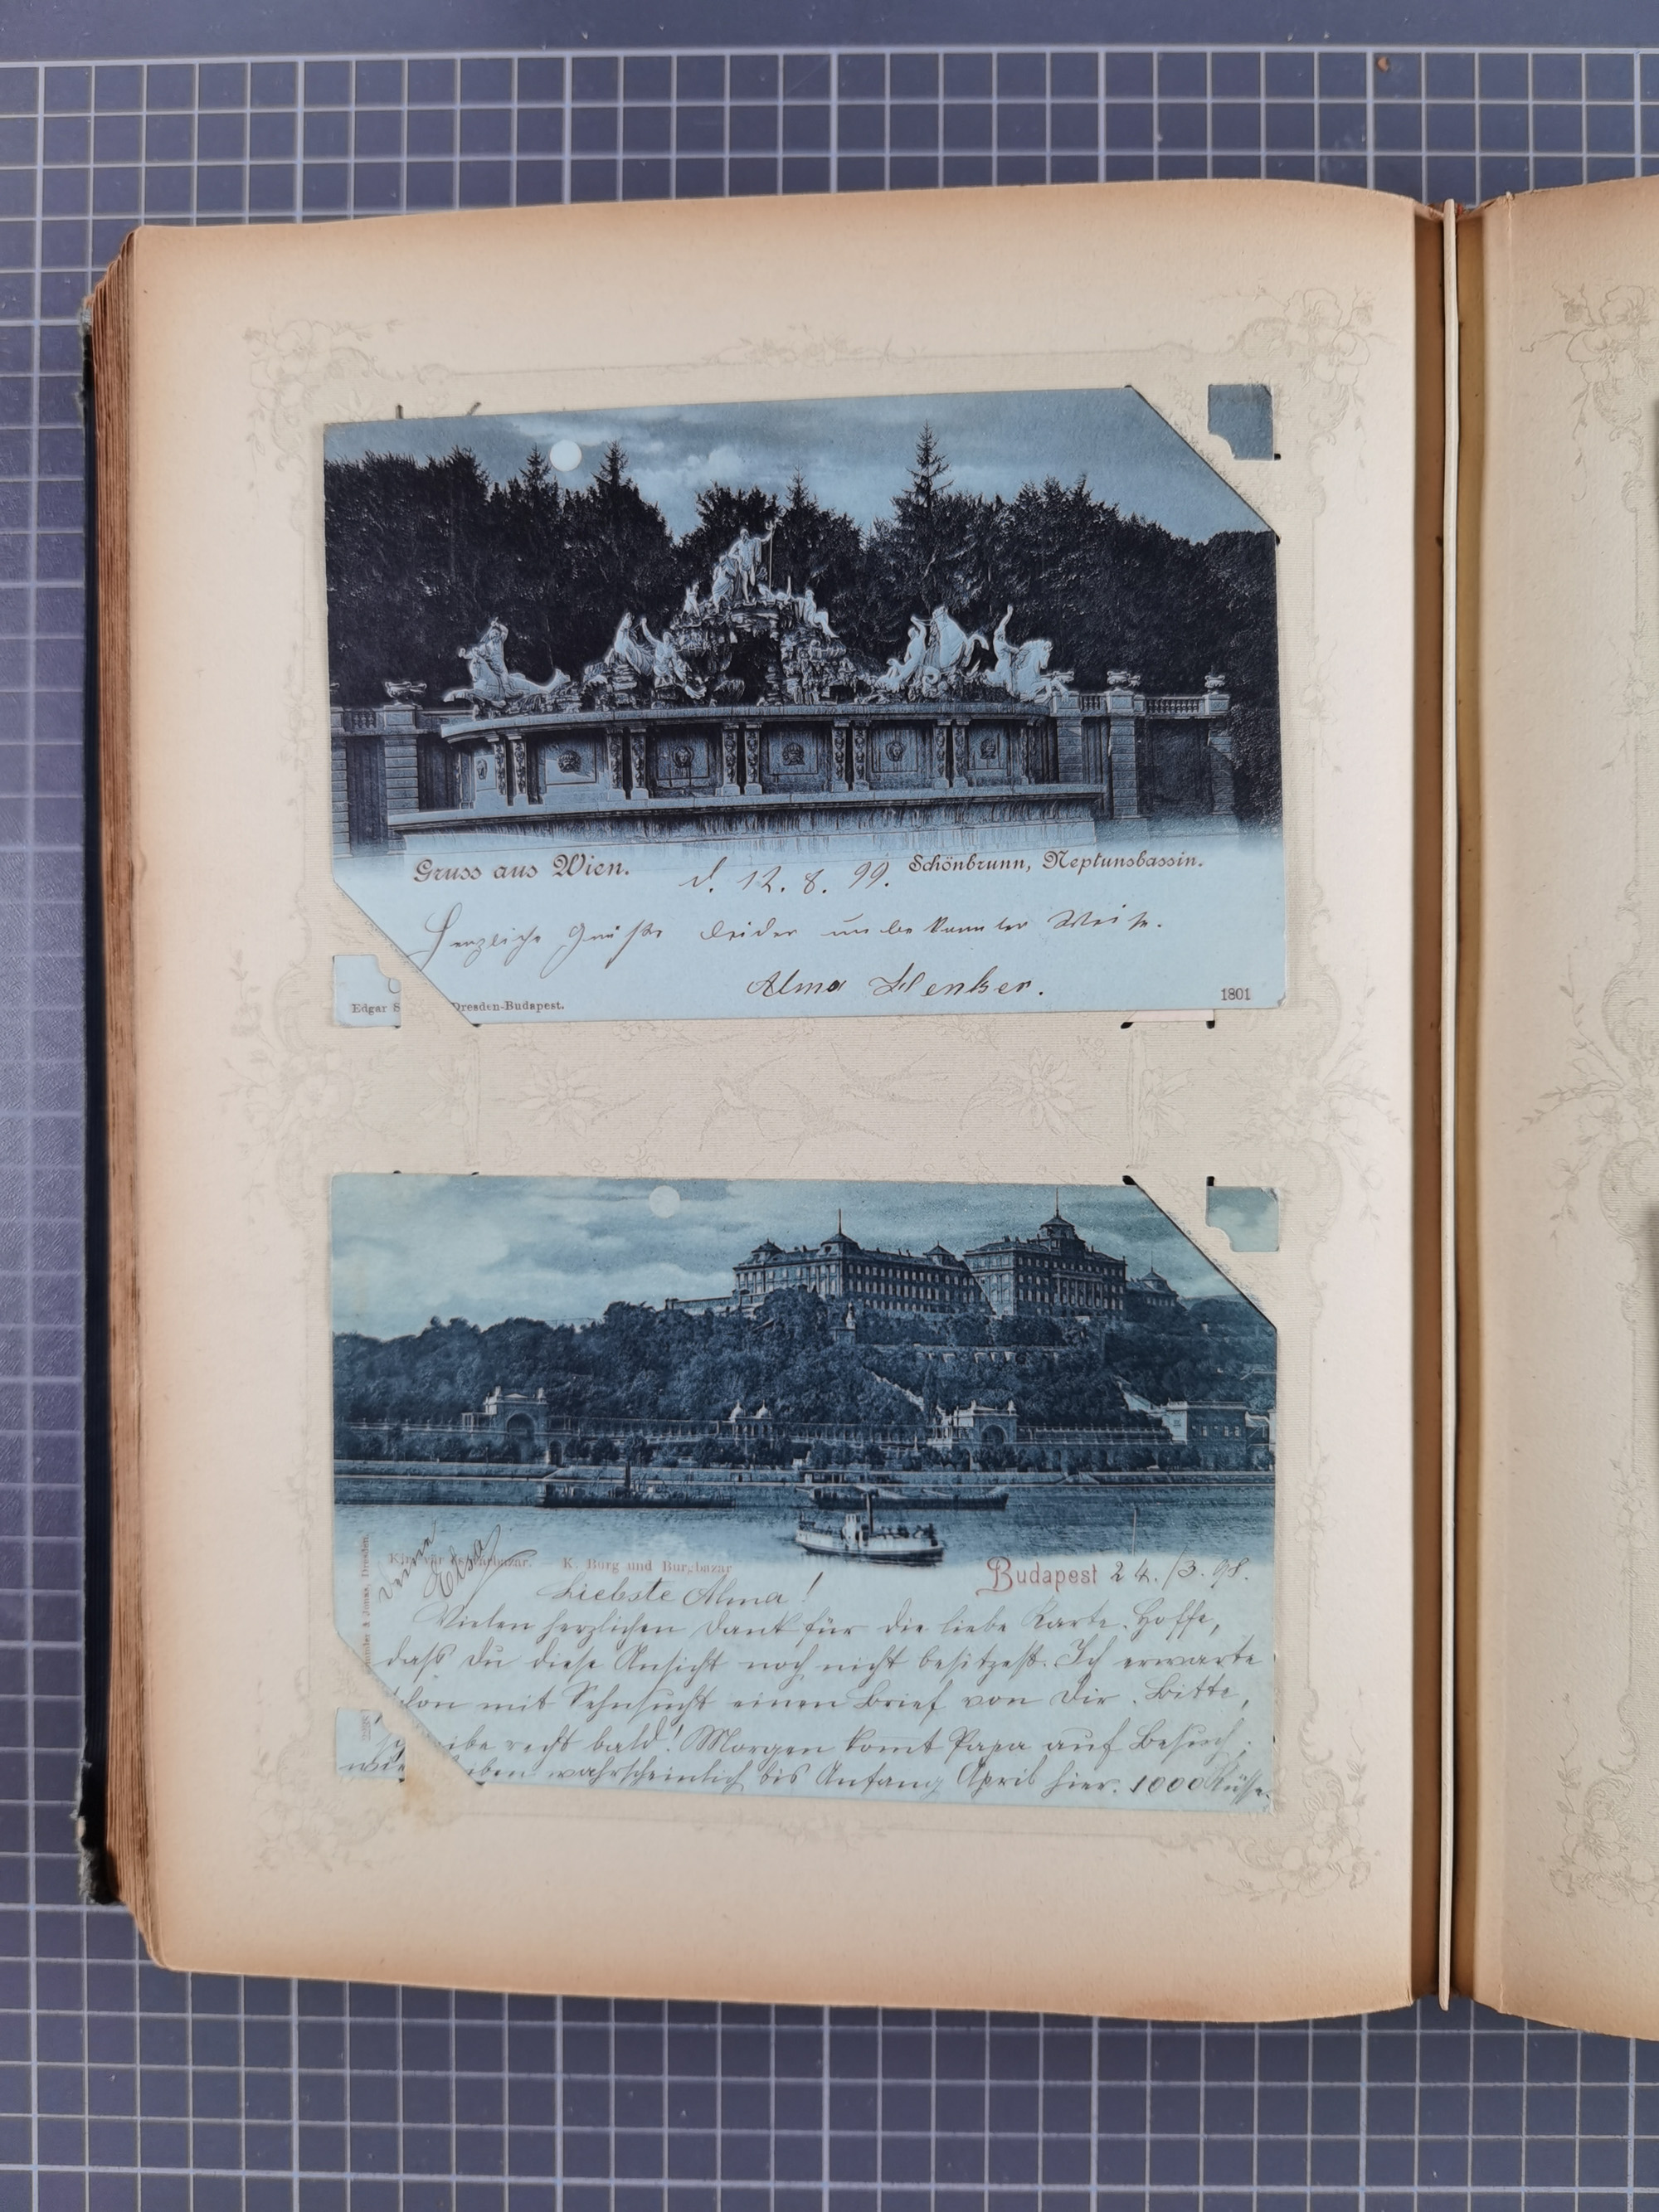 Gruss aus Wien. d. 12. 8. 99. Schönbrunn, Neptunsbassin.
Herzliche Grüße leider unbekannter Weise.
Alma Henker.
Edgar S Dresden-Budapest. 1801
Deine
Elsa
K. Burg und Burgbazar
Budapest 24./3. 98.
Liebste Alma!
Vielen herzlichen Dank für die liebe Karte. Hoffe,
daß Du diese Ansicht noch nicht besitzest. Ich erwarte
schon mit Sehnsucht einen Brief von Dir. Bitte,
recht bald! Morgen komt Papa auf Besuch.
wahrscheinlich bis Anfang April hier. 1000 Küsse.
Dresden.